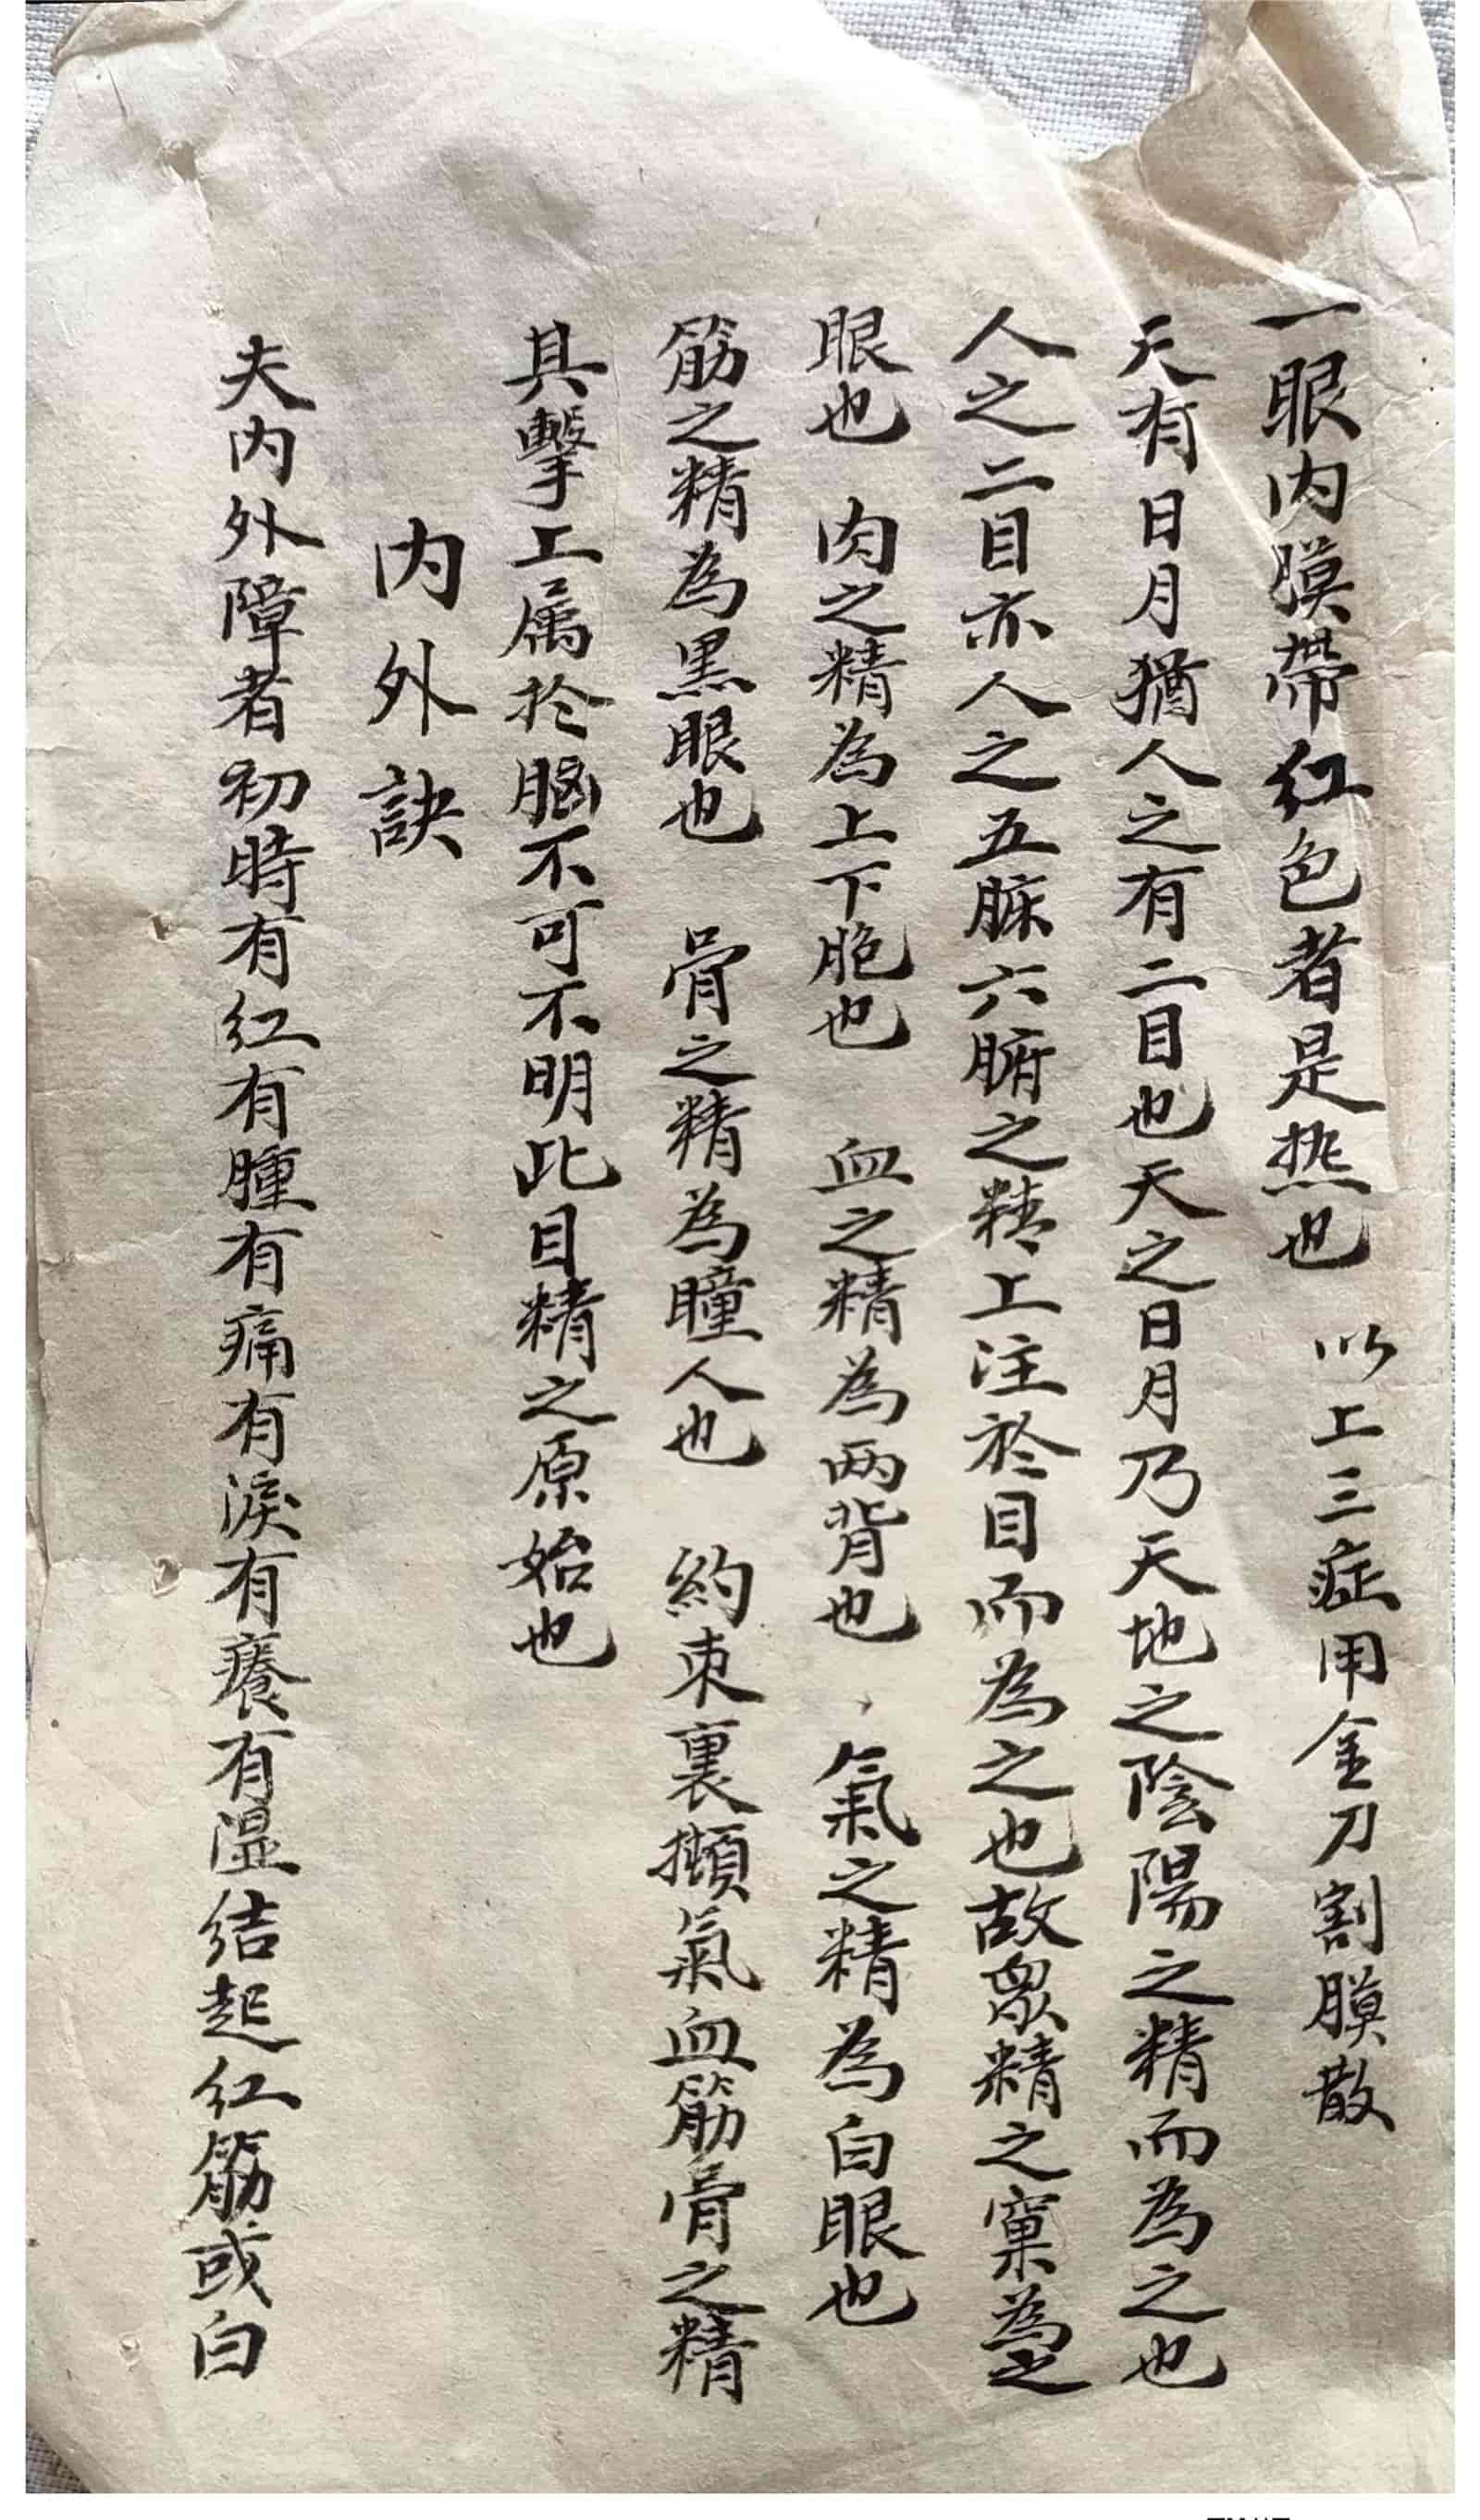 一眼内膜帶红色者是热也 以上三症用金刀割膜散
天有日月猶人之有二目也天之日月乃天地之陰陽之精而為之也
人之二目亦人之五脏六腑之精上注於目而為之也故眾精之窠為之
眼也 肉之精為上下胞也 血之精為两背也 氣之精為白眼也
筋之精為黑眼也 骨之精為瞳人也 約束裏擷氣血筋骨之精
具擊上属於腦不可不明此目精之原始也
内外訣
夫内外障者初時有红有腫有痛有淚有癢有濕结起红筋或白